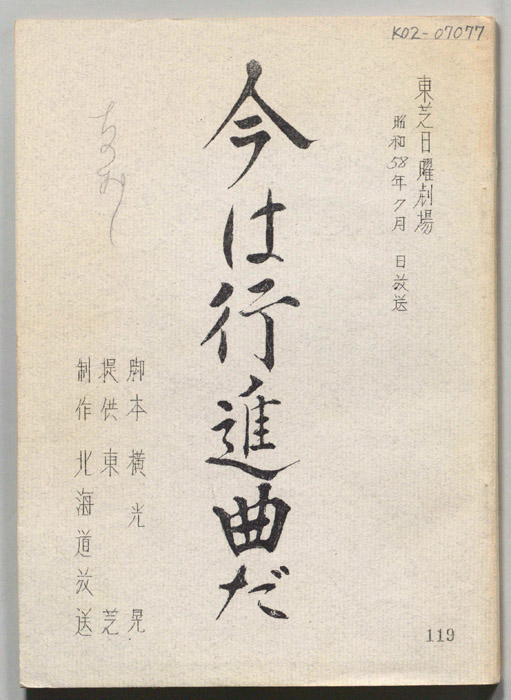 K02-07077
東芝日曜劇場
昭和58年7月 日放送
今は行進曲だ
脚本 横光 晃
提供 東 芝
制作 北海道放送
119